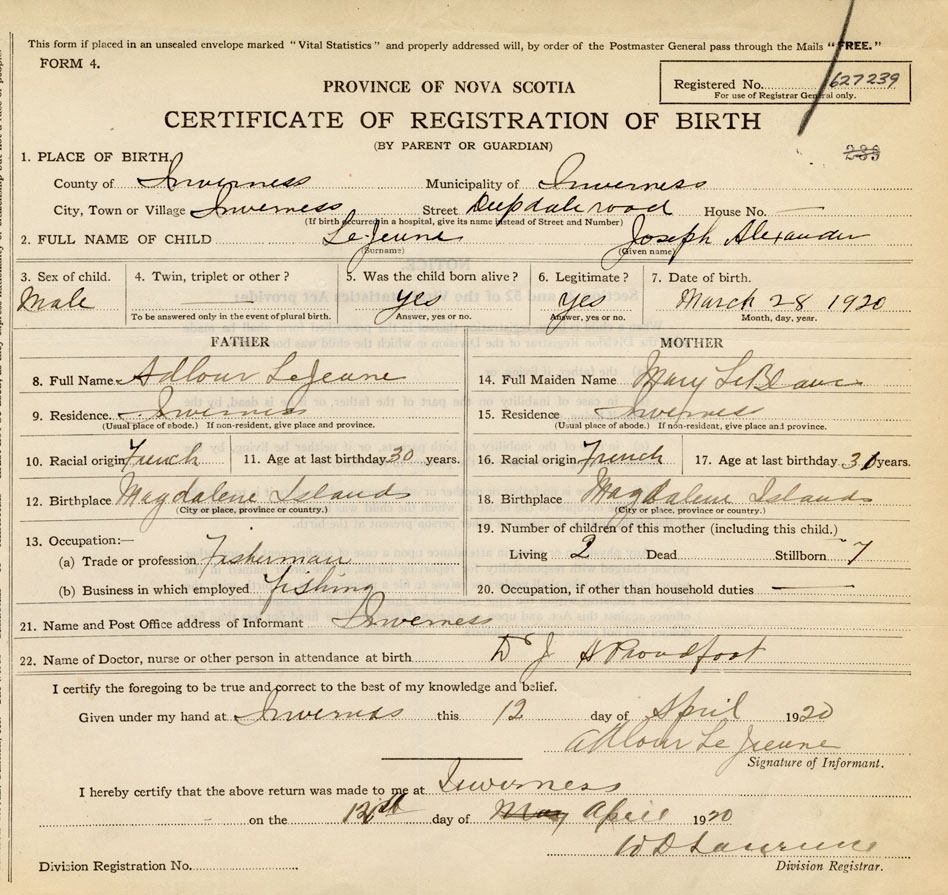 This form if placed in an unsealed envelope marked "Vital Statistics" and properly addressed will, by order of the Postmaster General pass through the Mails "FREE."
FORM 4.
Registered No. 627239
For use of Registrar General only.
PROVINCE OF NOVA SCOTIA
CERTIFICATE OF REGISTRATION OF BIRTH
(BY PARENT OR GUARDIAN)
1. PLACE OF BIRTH,
County of Inverness Municipality of Inverness
City, Town or Village Inverness Street Deepdale road House No. —
(If birth occurred in a hospital, give its name instead of Street and Number)
2. FULL NAME OF CHILD LeJeune Joseph Alexander
(Surname) (Given name)
3. Sex of child. 4. Twin, triplet or other? 5. Was the child born alive? 6. Legitimate? 7. Date of birth.
Male — yes yes March 28 1920
To be answered only in the event of plural birth. Answer, yes or no. Answer, yes or no. Month, day, year.
FATHER MOTHER
8. Full Name Adlour LeJeune 14. Full Maiden Name Mary LeBlanc
9. Residence. Inverness 15. Residence Inverness
(Usual place of abode.) If non-resident, give place and province. (Usual place of abode.) If non-resident, give place and province.
10. Racial origin French 11. Age at last birthday 30 years. 16. Racial origin French 17. Age at last birthday 31 years.
12. Birthplace Magdalene Islands 18. Birthplace Magdalene Islands
(City or place, province or country.) (City or place, province or country.)
13. Occupation:— 19. Number of children of this mother (including this child.)
(a) Trade or profession Fisherman Living 2 Dead Stillborn 7
(b) Business in which employed Fishing 20. Occupation, if other than household duties —
21. Name and Post Office address of Informant Inverness
22. Name of Doctor, nurse or other person in attendance at birth Dr J S Proudfoot
I certify the foregoing to be true and correct to the best of my knowledge and belief.
Given under my hand at Inverness this 12 day of April 1920
Adlour Le Jeune
Signature of Informant.
I hereby certify that the above return was made to me at Inverness
on the day of May April 1920
W D Lawrence
Division Registration No. Division Registrar.